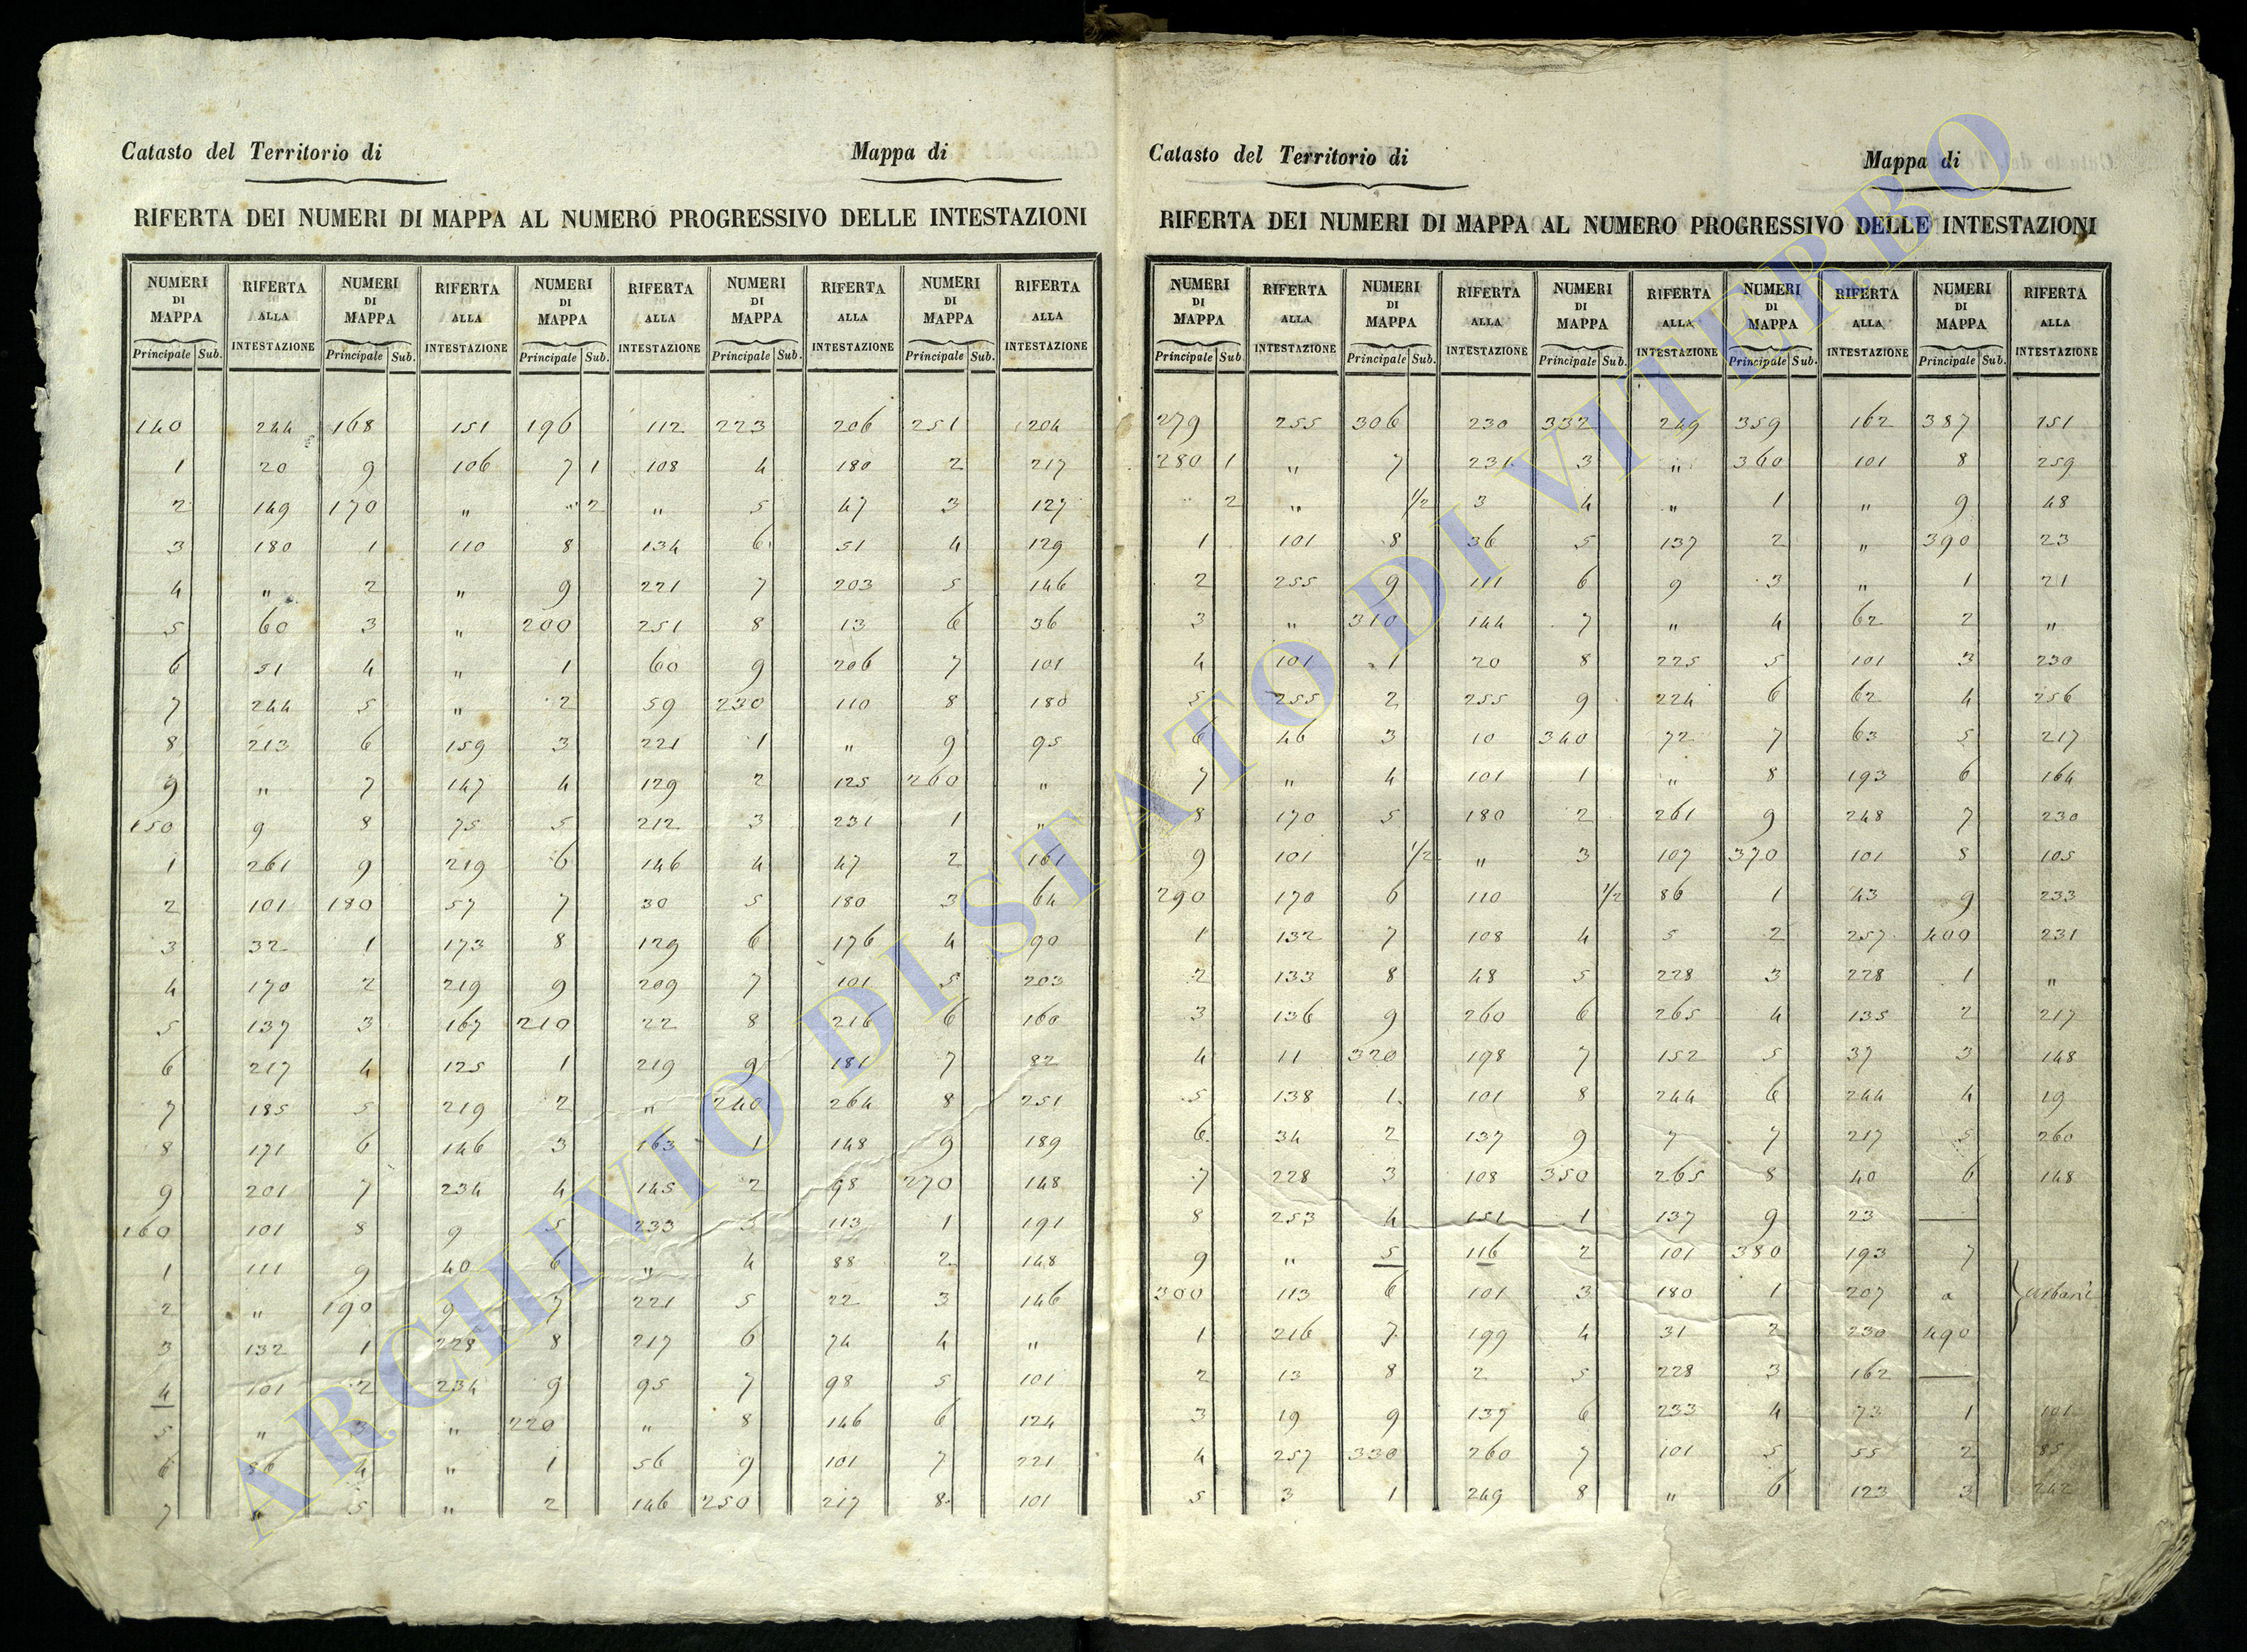 Catasto del Territorio di Mappa di
RIFERTA DEI NUMERI DI MAPPA AL NUMERO PROGRESSIVO DELLE INTESTAZIONI
NUMERI DI MAPPA RIFERTA ALLA INTESTAZIONE NUMERI DI MAPPA RIFERTA ALLA INTESTAZIONE NUMERI DI MAPPA RIFERTA ALLA INTESTAZIONE NUMERI DI MAPPA RIFERTA ALLA INTESTAZIONE NUMERI DI MAPPA RIFERTA ALLA INTESTAZIONE
Principale Sub. Principale Sub. Principale Sub. Principale Sub. Principale Sub.
140 244 168 151 196 112 223 206 251 204
1 20 9 106 7 1 108 4 180 2 217
2 149 170 " " 2 " 5 47 3 127
3 180 1 110 8 134 6 51 4 129
4 " 2 " 9 221 7 203 5 146
5 60 3 " 200 251 8 13 6 36
6 51 4 " 1 60 9 206 7 101
7 244 5 " 2 59 230 110 8 180
8 213 6 159 3 221 1 " 9 95
9 " 7 147 4 129 2 125 260 "
150 9 8 75 5 212 3 231 1 "
1 261 9 219 6 146 4 47 2 161
2 101 180 57 7 30 5 180 3 64
3 32 1 173 8 129 6 176 4 90
4 170 2 219 9 209 7 101 5 203
5 137 3 167 210 22 8 216 6 160
6 217 4 125 1 219 9 181 7 82
7 185 5 219 2 " 240 264 8 251
8 171 6 146 3 163 1 148 9 189
9 201 7 234 4 145 2 98 270 148
160 101 8 9 5 233 3 113 1 191
1 111 9 40 6 " 4 88 2 148
2 " 190 9 7 221 5 22 3 146
3 132 1 228 8 217 6 74 4 "
4 101 2 234 9 95 7 98 5 101
5 " 3 " 220 " 8 146 6 124
6 86 4 " 1 56 9 101 7 221
7 " 5 " 2 146 250 217 8 101
Catasto del Territorio di Mappa di
RIFERTA DEI NUMERI DI MAPPA AL NUMERO PROGRESSIVO DELLE INTESTAZIONI
NUMERI DI MAPPA RIFERTA ALLA INTESTAZIONE NUMERI DI MAPPA RIFERTA ALLA INTESTAZIONE NUMERI DI MAPPA RIFERTA ALLA INTESTAZIONE NUMERI DI MAPPA RIFERTA ALLA INTESTAZIONE NUMERI DI MAPPA RIFERTA ALLA INTESTAZIONE
Principale Sub. Principale Sub. Principale Sub. Principale Sub. Principale Sub.
279 255 306 230 332 249 359 162 387 151
280 1 " 7 231 3 " 360 101 8 259
2 " 1/2 3 4 " 1 " 9 48
1 101 8 36 5 137 2 " 390 23
2 255 9 111 6 9 3 " 1 21
3 " 310 144 7 " 4 62 2 "
4 101 1 20 8 225 5 101 3 230
5 255 2 255 9 224 6 62 4 256
6 46 3 10 340 72 7 63 5 217
7 " 4 101 1 " 8 193 6 164
8 170 5 180 2 261 9 248 7 230
9 101 1/2 " 3 107 370 101 8 105
290 170 6 110 1/2 86 1 43 9 233
1 132 7 108 4 5 2 257 400 231
2 133 8 48 5 228 3 228 1 "
3 136 9 260 6 265 4 135 2 217
4 11 320 198 7 152 5 37 3 148
5 138 1 101 8 244 6 244 4 19
6 34 2 137 9 7 7 217 5 260
7 228 3 108 350 265 8 40 6 148
8 253 4 151 1 137 9 23
9 " 5 116 2 101 380 193 7
300 113 6 101 3 180 1 207 a Urbani
1 216 7 199 4 31 2 230 490
2 13 8 2 5 228 3 162
3 19 9 137 6 233 4 73 1 101
4 257 330 260 7 101 5 55 2 85
5 3 1 249 8 " 6 123 3 242
ARCHIVIO DI STATO DI VITERBO